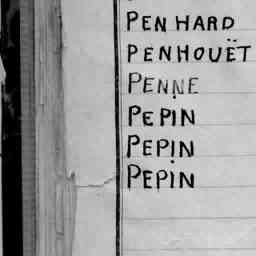 PENHARD
PENHOUËT
PENNE
PEPIN
PEPIN
PEPIN